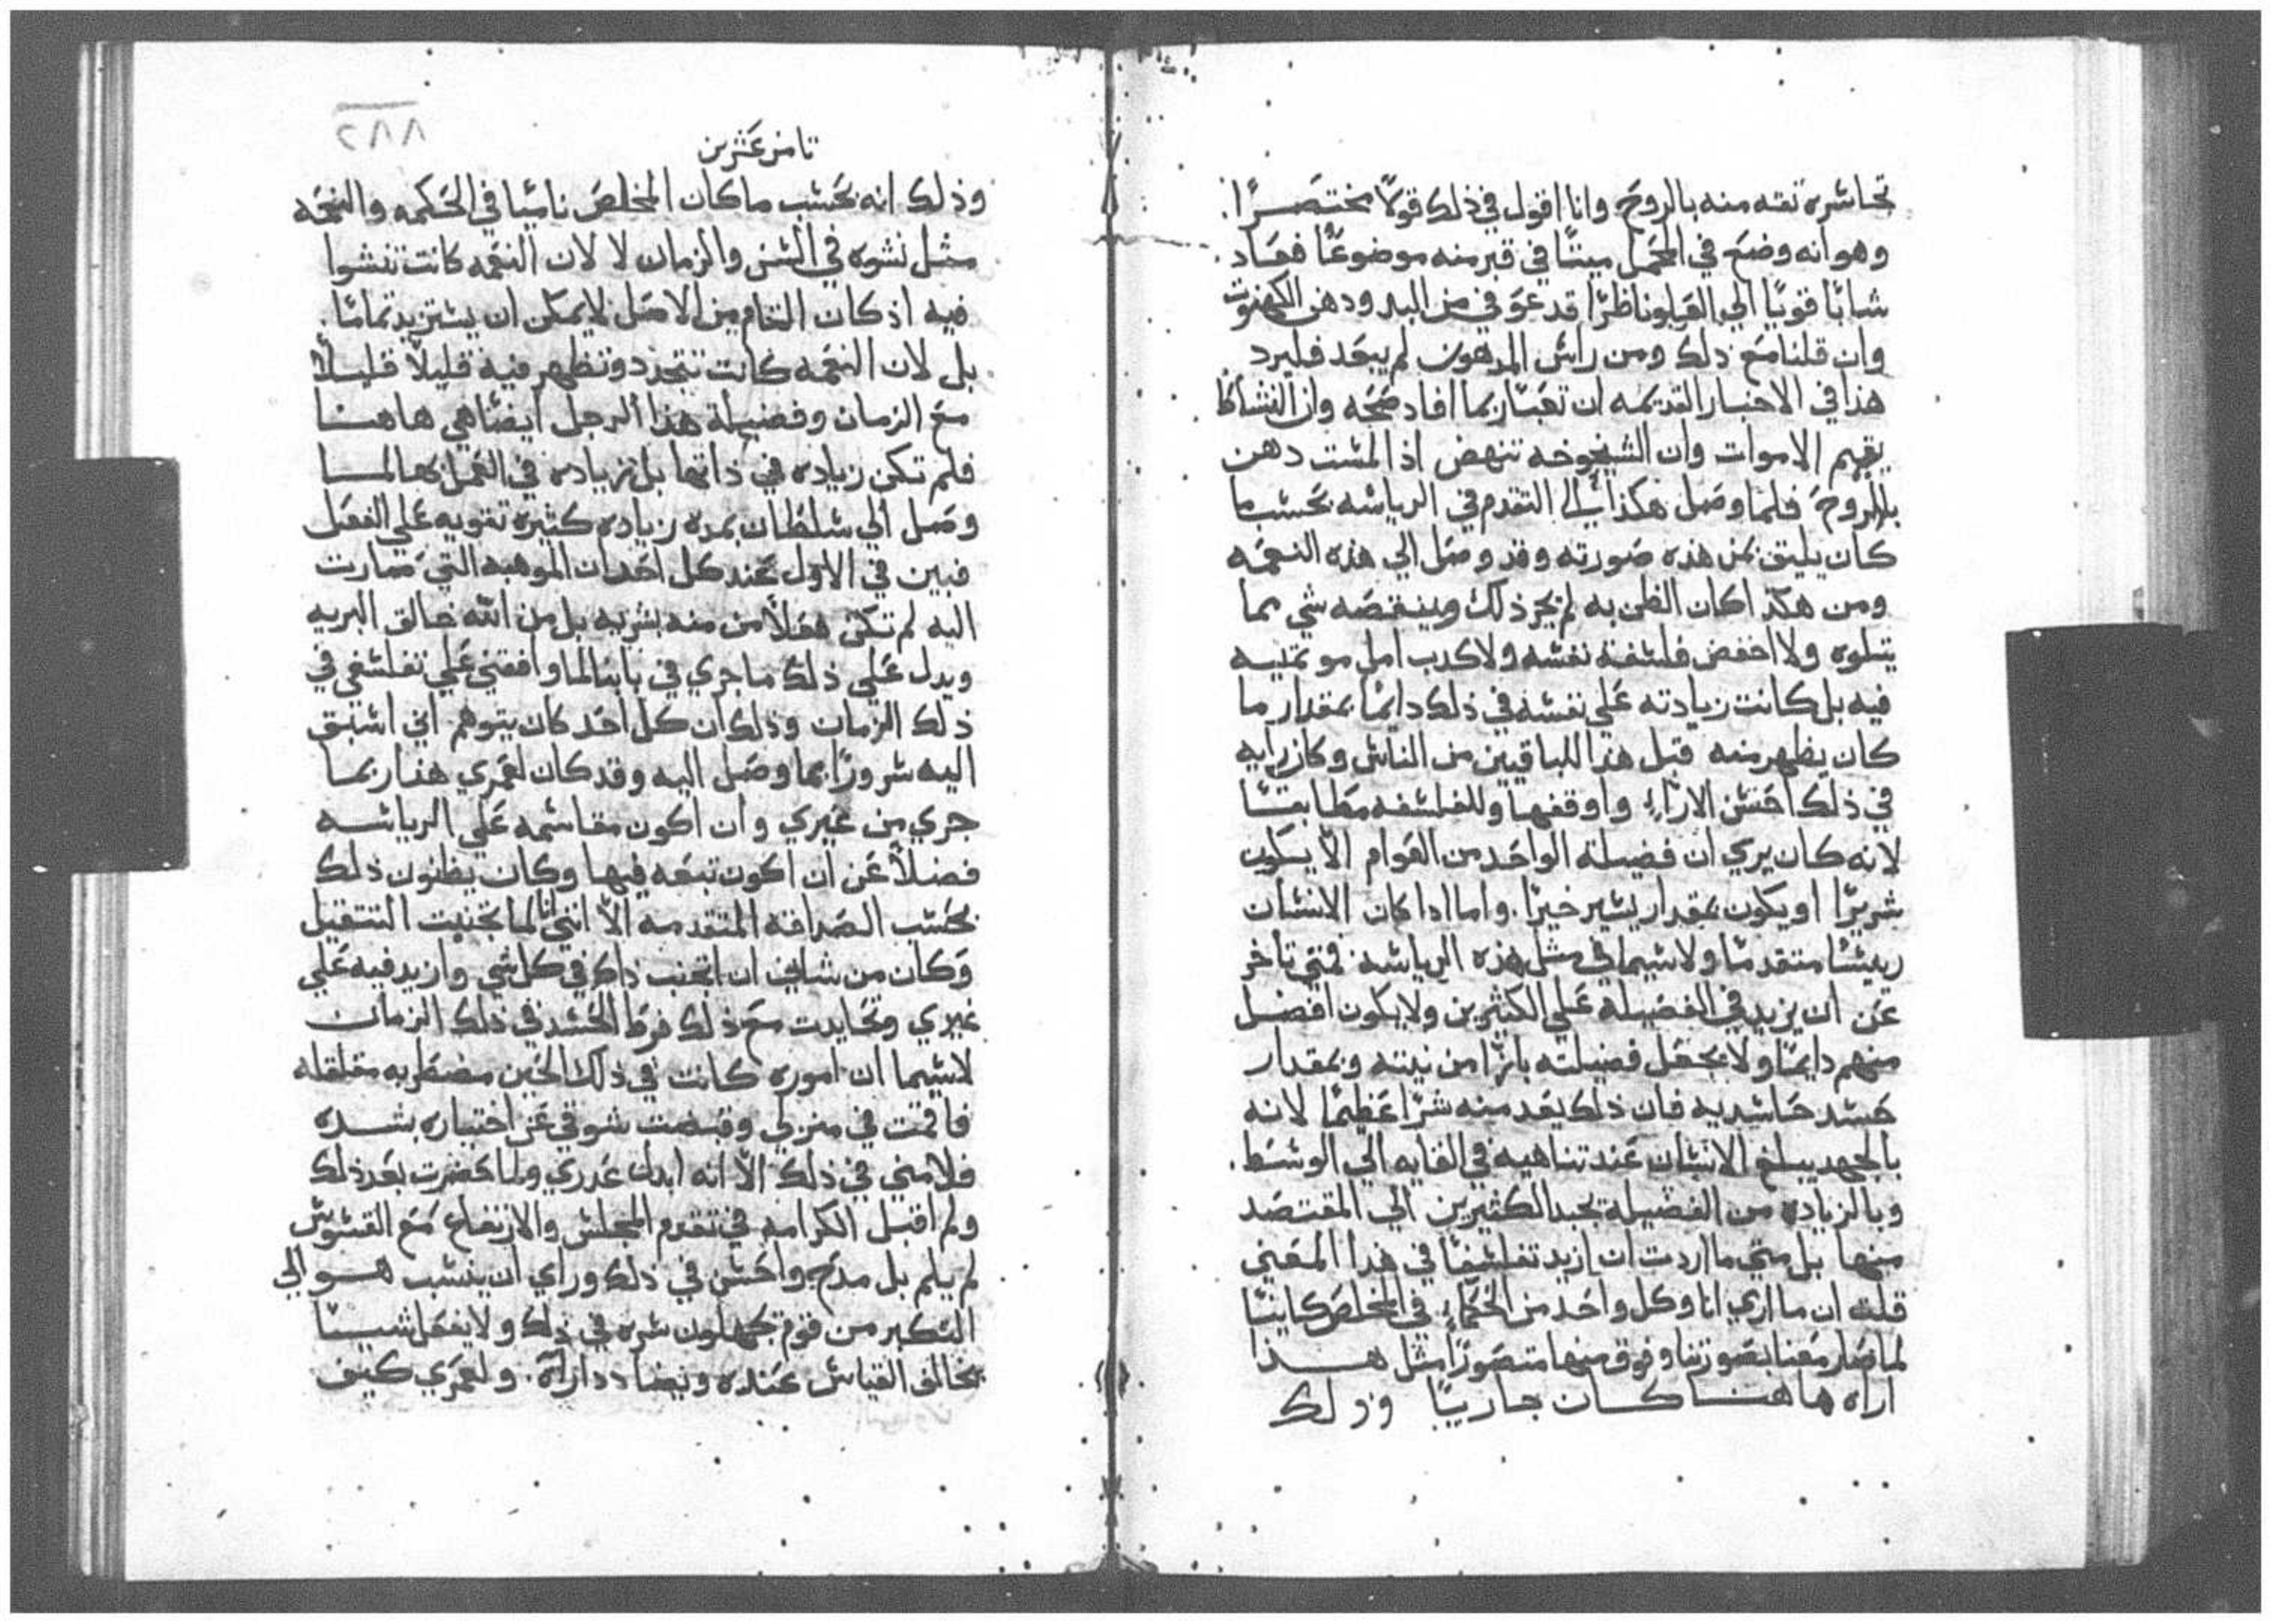 تجاسره ثقه منه بالروح وانا اقول في ذلك قولًا مختصرًا.
وهو انه وضع في المحمل ميتًا في قبر منه موضوعًا فعاد
شابًا قويًا الي العلو ناظرًا قد عو في من اليد ودهن الكهنوت
وان قلنا مع ذلك ومن راس المدهون لم يبعد فليرد
هذا في الاخبار القديمه ان تعبًا ربما افاد صحه وان النشاط
يقيم الاموات وان الشيخوخه تنهض اذا لمست دهن
بالروح فلما وصل هكذا الي التقدم في الرياسه بحسب ما
كان يليق بمن هذه صورته وقد وصل الي هذه النعمه
ومن هكذا كان الظن به لم يجر ذلك وينقصه شي مما
يتلوه ولا اخفض فلسفة نفسه ولا كدب امل موتمنيه
فيه بل كانت زيادته علي نفسه في ذلك دايمًا بمقدار ما
كان يظهر منه قبل هذا للباقيين من الناس وكان رايه
في ذلك احسن الاراء واوفقها وللفلسفه مطابقتًا
لانه كان يري ان فضيلة الواحد من العوام الا يكون
شريرًا او يكون بمقدار يسير خيرًا. واما اذا كان الانسان
رييسًا متقدمًا ولا سيما في مثل هذه الرياسه فمتي تاخر
عن ان يزيد في الفضيله علي الكثيرين ولا يكون افضل
منهم دايمًا ولا يجعل فضيلته بازا من نيته وبمقدار
حسد حاسديه فان ذلك يعد منه شرًا عظيمًا لانه
بالجهد يبلغ الانسان عند تناهيه في الغايه الي الوسط.
وبالزياده من الفضيلة يجبد الكثيرين الي المقتصد
منها بل متي ما اردت ان ازيد تفلسفًا في هذا المعني
قلت ان ما اري انا وكل واحد من الحكماء في المخلص كاينًا
لما صار معنا بصورتنا وفوق منها متصورًا مثل هذا
اراه هاهنا كان جاريًا وذلك
٨٨٢
ثامن عشرين
وذلك انه بحسب ما كان المخلص ناميًا في الحكمه والنعمه
مثل نشوه في السن والزمان لا لان النعمه كانت تنشوا
فيه اذ كان التام من الاصل لا يمكن ان يستزيد تمامًا.
بل لان النعمه كانت تتجدد وتظهر فيه قليلًا قليلًا
مع الزمان وفضيلة هذا الرجل ايضًا هي هاهنا
فلم تكن زياده في ذاتها بل زياده في العمل بها لما
وصل الي سلطان بمدة زياده كثيره تقويه علي الفعل
فبين في الاول عند كل احد ان الموهبه التي صارت
اليه لم تكن فعلًا من منه بشريه بل من الله خالق البريه
ويدل علي ذلك ما جري في بابنا لما وافقني علي تفلسفي في
ذلك الزمان وذلك ان كل احد كان يتوهم اني اسبق
اليه سرورًا بما وصل اليه وقد كان لعمري هذا ربما
جري من غيري وان اكون مقاسمه علي الرياسه
فضلًا عن ان اكون تبعه فيها وكان يظنون ذلك
بحسب الصداقه المتقدمه الا انني لما تجنبت التتقيل
وكان من شاني ان اتجنب ذاك في كل شي وازيد فيه علي
غيري وتحايدت مع ذلك فرط الحسد في ذلك الزمان
لاسيما ان اموره كانت في ذلك الحين مضطربه مقلقله
فاقمت في منزلي وقبضت شوقي عن اختياره بشده
فلامني في ذلك الا انه ابدل عدري ولما حضرت بعد ذلك
ولم اقبل الكرامه في تقدم المجلس والارتفاع مع القسوس
لم يلم بل مدح واحسن في ذلك وراي ان ينسب هو الي
التكبر من قوم يجهلون سره في ذلك ولا يفعل شييًا
يخالف القياس عنده ويضادد اراه. ولعمري كيف